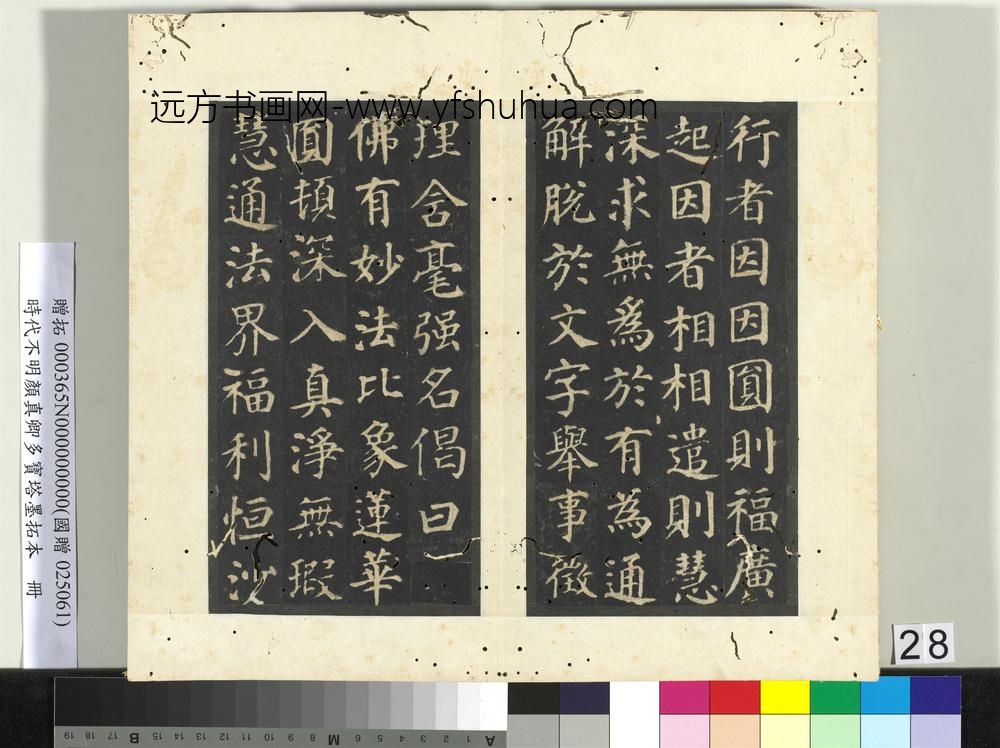 远方书画网-www.yfshuhua.com
行者因因圓則福廣
起因者相相遣則慧
深求無為於有為通
解脫於文字舉事徵
理含毫强名偈曰
佛有妙法比象蓮華
圓頓深入真淨無瑕
慧通法界福利恒沙
贈拓 000365N000000000(國贈 025061)
時代不明顏真卿多寶塔墨拓本 冊
28
19 18 17 B 16 15 14 13 12 11 10 9 8 M 7 6 5 4 3 2 1 A